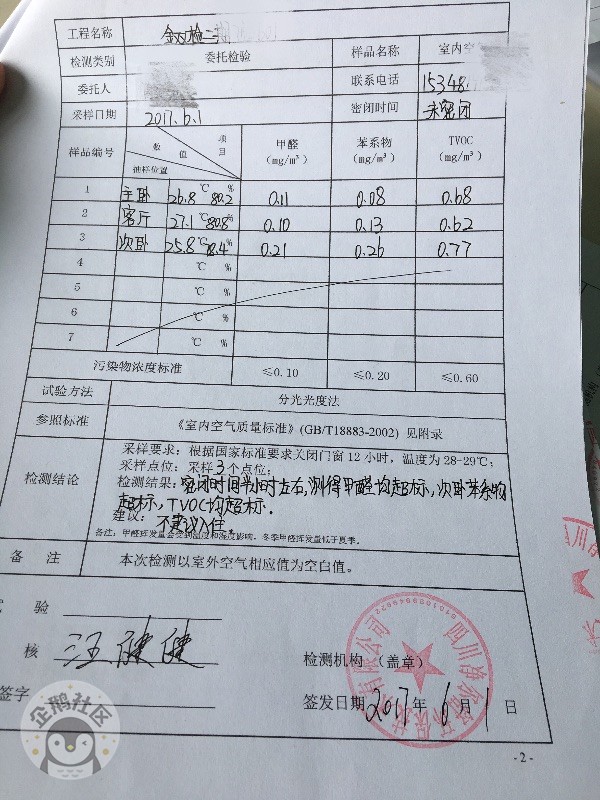 工程名称
检测类别 委托检验 样品名称 室内空
委托人 联系电话 15348
采样日期 2017.6.1 密闭时间 未密闭
样品编号 数值 项目 抽样位置 甲醛 (mg/m³) 苯系物 (mg/m³) TVOC (mg/m³)
1 主卧 26.8℃ 80.2% 0.11 0.08 0.68
2 客厅 27.1℃ 80.8% 0.10 0.13 0.62
3 次卧 25.8℃ 78.4% 0.21 0.26 0.77
4 ℃ %
5 ℃ %
6 ℃ %
7 ℃ %
污染物浓度标准 ≤0.10 ≤0.20 ≤0.60
试验方法 分光光度法
参照标准 《室内空气质量标准》(GB/T18883-2002) 见附录
检测结论
采样要求：根据国家标准要求关闭门窗 12 小时，温度为 28-29℃；
采样点位：采样3个点位；
检测结果：密闭时间半小时左右,测得甲醛均超标,次卧苯系物
超标,TVOC均超标.
建议：不建议入住.
备注：甲醛挥发量会受到温度和湿度影响，冬季甲醛挥发量低于夏季。
备 注 本次检测以室外空气相应值为空白值。
验
核 汪健健
检测机构（盖章）
签字
签发日期 2017年 6月 1日
企鹅社区
-2-